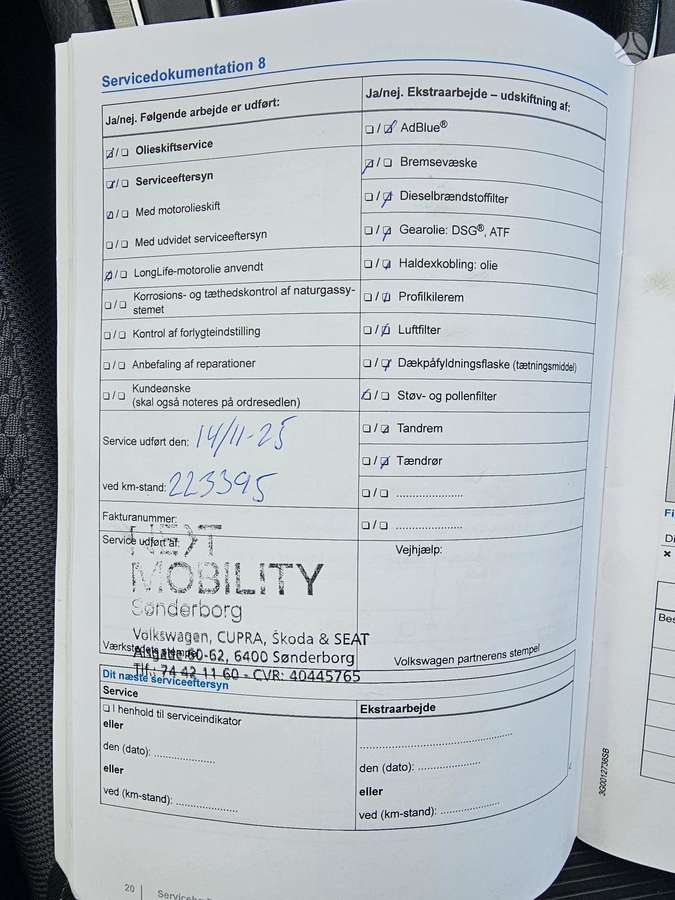 Servicedokumentation 8
Ja/nej. Følgende arbejde er udført:
☑/☐ Olieskiftservice
☑/☐ Serviceeftersyn
☑/☐ Med motorolieskift
☐/☐ Med udvidet serviceeftersyn
☑/☐ LongLife-motorolie anvendt
☐/☐ Korrosions- og tæthedskontrol af naturgassy-
stemet
☐/☐ Kontrol af forlygteindstilling
☐/☐ Anbefaling af reparationer
☐/☐ Kundeønske
(skal også noteres på ordresedlen)
Service udført den: 14/11-25
ved km-stand: 223395
Fakturanummer:
Service udført af:
NEXT
MOBILITY
Sønderborg
Volkswagen, CUPRA, Škoda & SEAT
Alsgade 60-62, 6400 Sønderborg
Tlf.: 74 42 11 60 - CVR: 40445765
Værkstedets stempel
Ja/nej. Ekstraarbejde – udskiftning af:
☐/☑ AdBlue®
☑/☐ Bremsevæske
☐/☑ Dieselbrændstoffilter
☐/☑ Gearolie: DSG®, ATF
☐/☑ Haldexkobling: olie
☐/☑ Profilkilerem
☐/☑ Luftfilter
☐/☑ Dækpåfyldningsflaske (tætningsmiddel)
☑/☐ Støv- og pollenfilter
☐/☑ Tandrem
☐/☑ Tændrør
☐/☐ .....................
☐/☐ .....................
Vejhjælp:
Volkswagen partnerens stempel
Dit næste serviceeftersyn
Service
☐ I henhold til serviceindikator
eller
den (dato): ...................
eller
ved (km-stand): ...................
Ekstraarbejde
................................................
den (dato): ...................
eller
ved (km-stand): ........................
20
3G0012738SB
Fi
Di
×
Bes